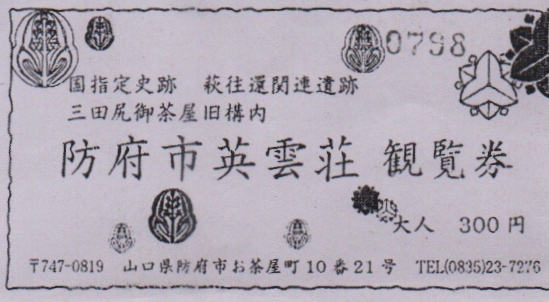 0798
国指定史跡　萩往還関連遺跡
三田尻御茶屋旧構内
防府市英雲荘 観覧券
大人　300円
〒747-0819　山口県防府市お茶屋町10番21号　TEL(0835)23-7276